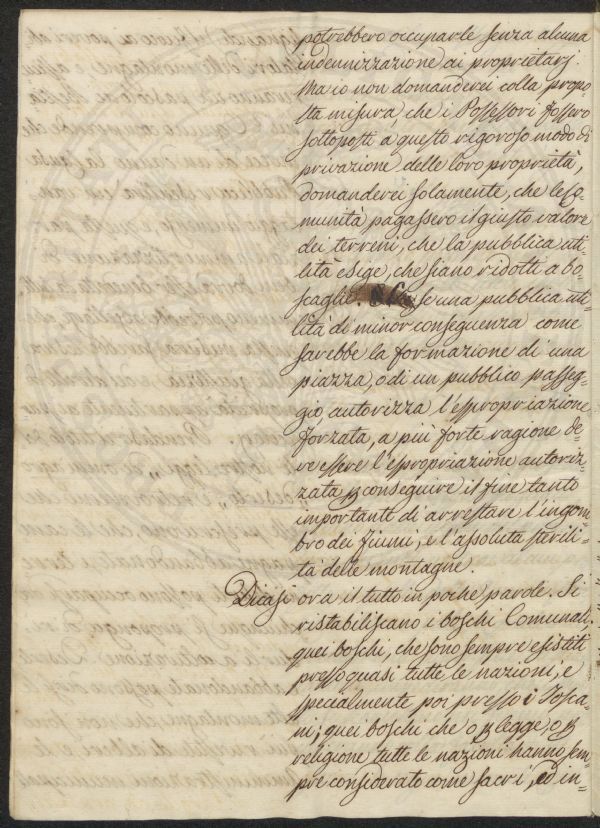 potrebbero occuparle senza alcuna
indennizzazione ai proprietarj.
Ma io non domanderei colla propo
sta misura che i Possessori fossero
sottoposti a questo rigoroso modo di
privazione delle loro proprietà,
domanderei solamente, che le Co-
munità pagassero il giusto valore
dei terreni, che la pubblica uti-
lità esige, che siano ridotti a bo-
scaglie. se una pubblica uti-
lità di minor conseguenza come
sarebbe la formazione di una
piazza, o di un pubblico passeg-
gio autorizza l'espropriazione
forzata, a più forte ragione de-
ve essere l'espropriazione autoriz-
zata p conseguire il fine tanto
importante di arrestare l'ingom-
bro dei fiumi, e l'assoluta sterili-
tà delle montagne.
Dicasi ora il tutto in poche parole. Si
ristabiliscano i boschi Comunali,
quei boschi, che sono sempre esistiti
presso quasi tutte le nazioni, e
specialmente poi presso i Tosca-
ni; quei boschi che o p legge, o p
religione tutte le nazioni hanno sem
pre considerato come sacri, ed in-